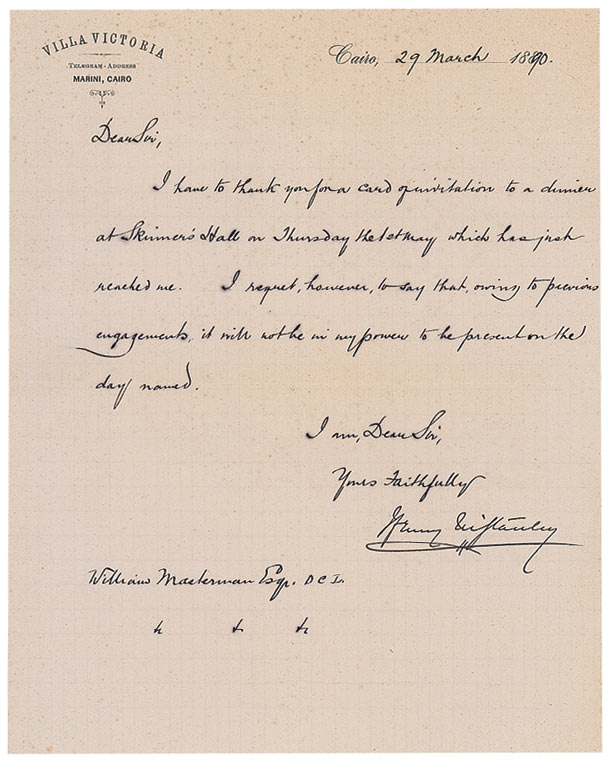 VILLA VICTORIA
TELEGRAM-ADDRESS
MARINI, CAIRO
Cairo, 29 March 1890.
Dear Sir,
I have to thank you for a card of invitation to a dinner
at Skinner's Hall on Thursday the 1st May which has just
reached me. I regret, however, to say that, owing to previous
engagements, it will not be in my power to be present on the
day named.
I am, Dear Sir,
Yours Faithfully
Henry M Stanley
William Masterman Esqr.